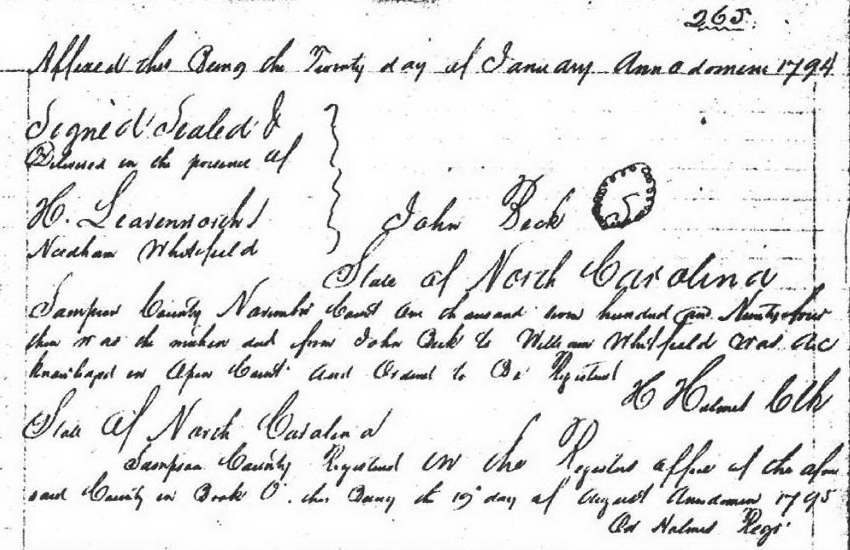 265
Affixed this Being the Twenty day of January Annodomini 1794
Signed Sealed &
Delivered in the presence of
H. Leavenworth
Needham Whitefield
John Beck
State of North Carolina
Sampson County November Court one thousand seven hundred and Ninty four
then was the within deed from John Beck to William Whitfield was ac
knowlaged in Open Court and Ordered to Be Registered
H Holmes Clk
State of North Carolina
Sampson County Registered in the Registers office of the afore
said County in Book O. this Being the 19 day of August Annodomini 1795
Holmes Regr